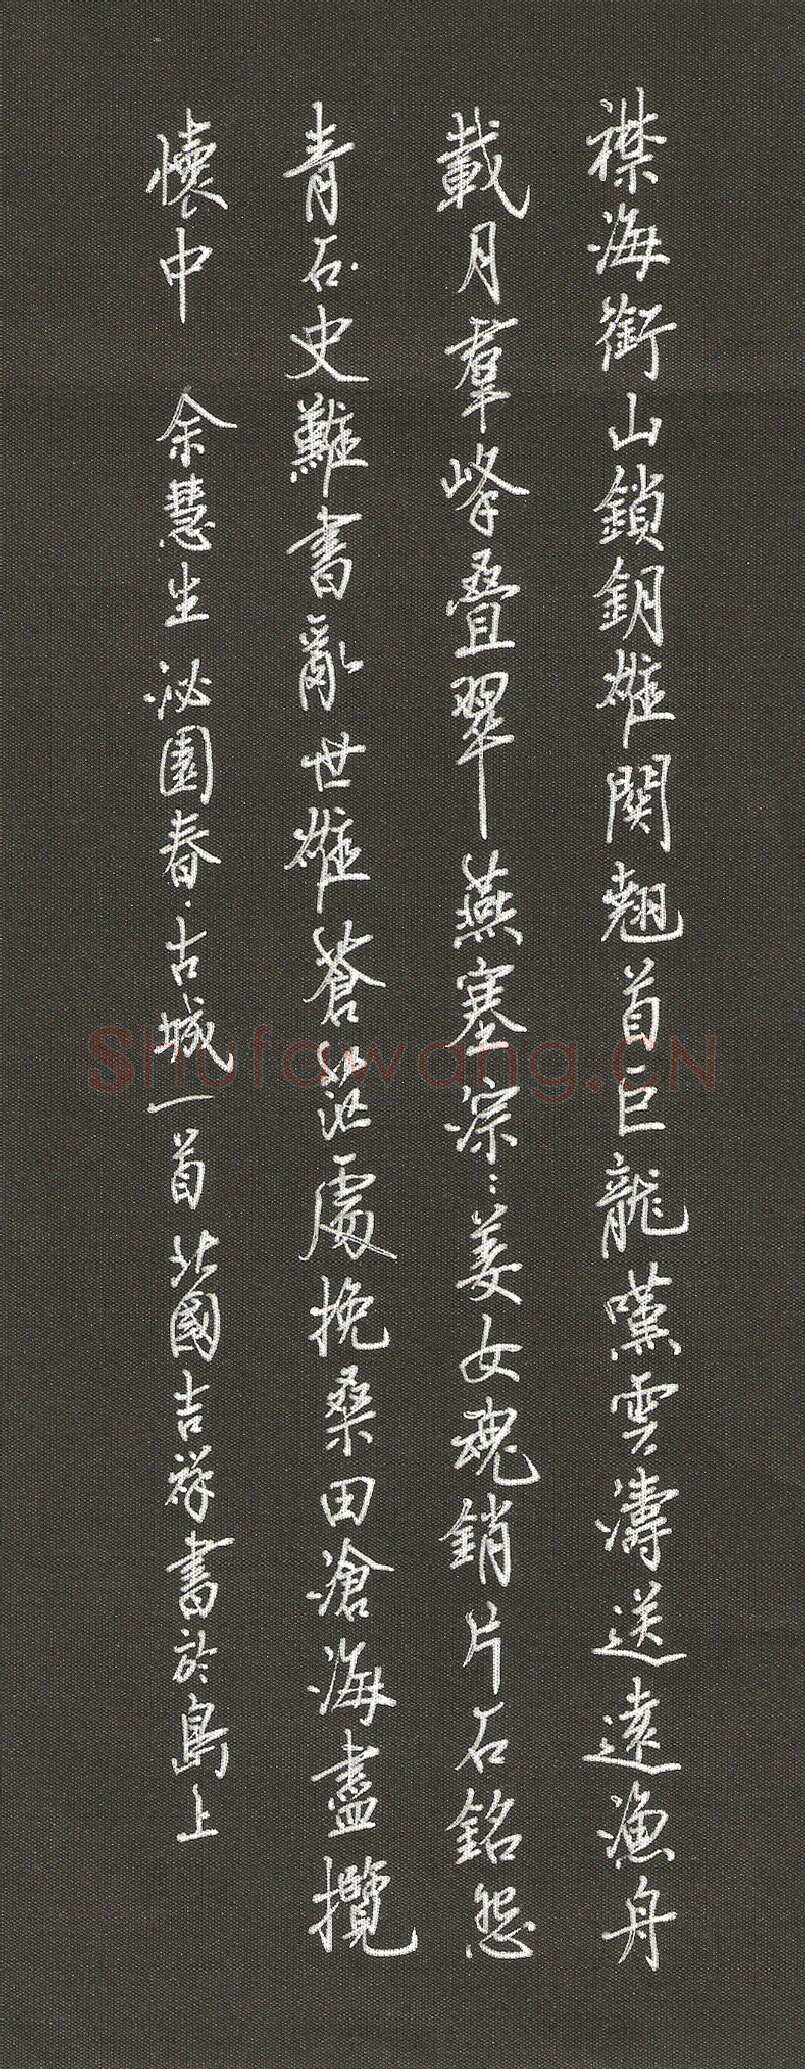 襟海銜山鎖鑰雄關翹首巨龍嘆雲濤送遠漁舟
載月羣峰疊翠燕塞深深姜女魂銷片石銘怨
青石史難書亂世雄蒼茫處挽桑田滄海盡攬
懷中 余慧生沁園春·古城一首北國吉祥書於島上
Shufawang.CN